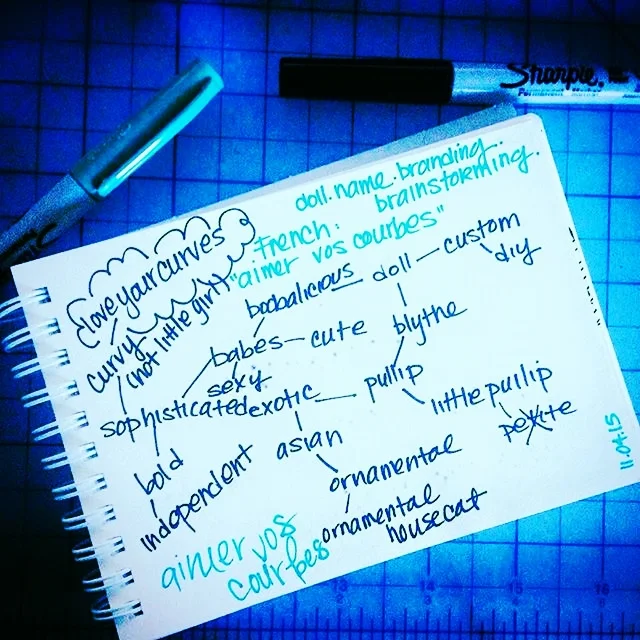 Sharpie.
Permanent Marker
doll.name.branding.
brainstorming.
French:
"aimer vos courbes"
love your curves
curvy
(not little girl)
boobalicious
doll
custom
diy
babes
cute
blythe
sexy
sophisticated
exotic
pullip
little pullip
petite
bold
asian
independent
ornamental
ornamental
housecat
aimer vos
courbes
11.04.15
13
14
15
16